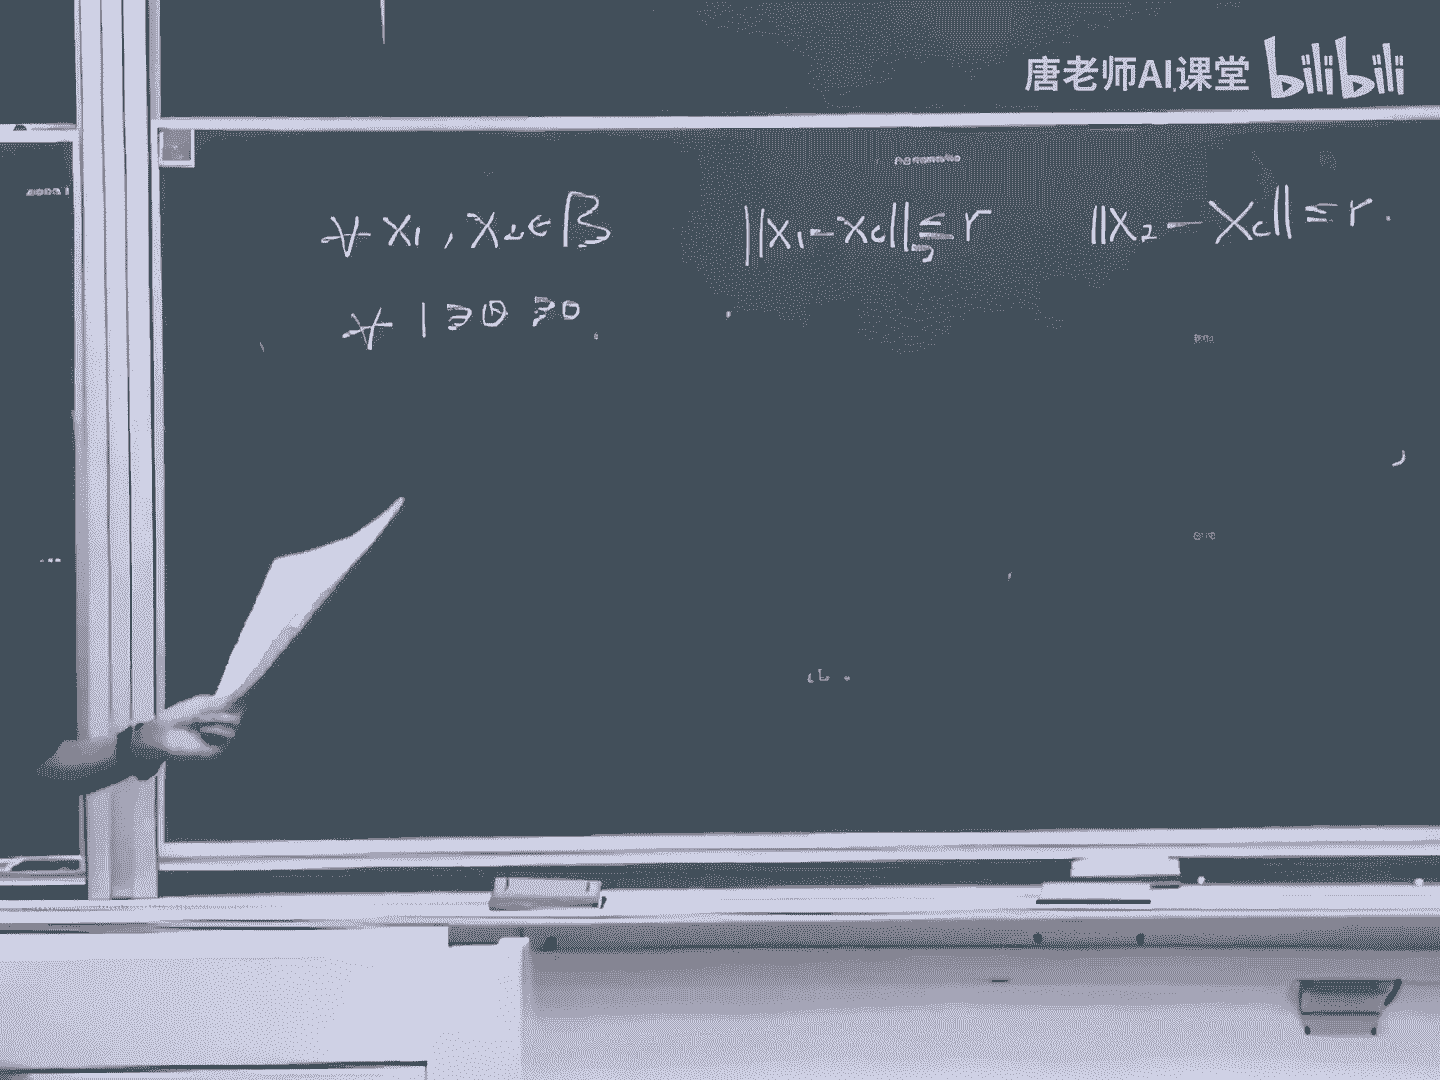 唐老师AI课堂 bilibili
∀ x₁, x₂ ∈ B ||x₁ - x_c|| ≤ r ||x₂ - x_c|| ≤ r.
∀ 1 ≥ θ ≥ 0.